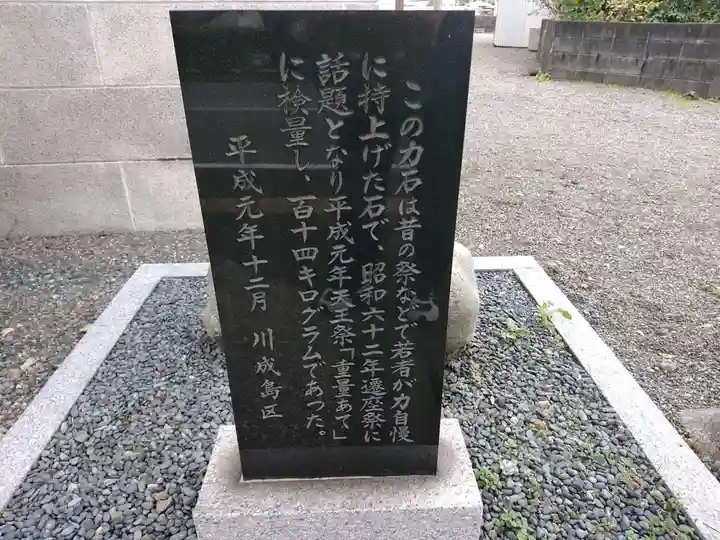 この力石は昔の祭などで若者が力自慢
に持上げた石で、昭和六十二年遷座祭に
話題となり平成元年天王祭「重量あて」
に検量し、百十四キログラムであつた。
平成元年十二月　川成島区